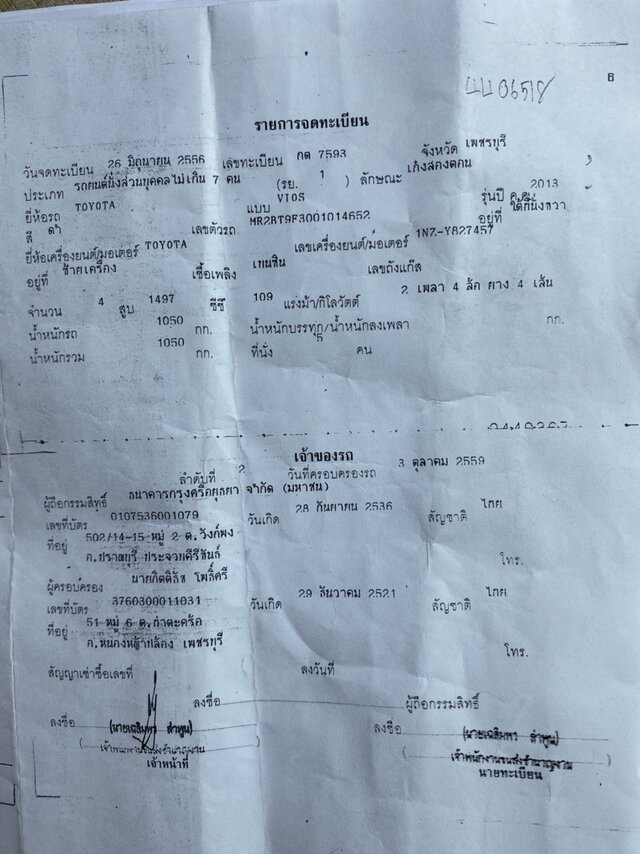 6
รายการจดทะเบียน
วันจดทะเบียน 26 มิถุนายน 2556 เลขทะเบียน กต 7593 จังหวัด เพชรบุรี
ประเภท รถยนต์นั่งส่วนบุคคลไม่เกิน 7 คน (รย. 1 ) ลักษณะ เก๋งสองตอน
ยี่ห้อรถ TOYOTA แบบ VIOS รุ่นปี ค.ศ. 2013
สี ดำ เลขตัวรถ MR2BT9F3001014652 อยู่ที่ ใต้ที่นั่งขวา
ยี่ห้อเครื่องยนต์/มอเตอร์ TOYOTA เลขเครื่องยนต์/มอเตอร์ 1NZ-Y827457
อยู่ที่ ซ้ายเครื่อง เชื้อเพลิง เบนซิน เลขถังแก๊ส
จำนวน 4 สูบ 1497 ซีซี 109 แรงม้า/กิโลวัตต์ 2 เพลา 4 ล้อ ยาง 4 เส้น
น้ำหนักรถ 1050 กก. น้ำหนักบรรทุก/น้ำหนักลงเพลา กก.
น้ำหนักรวม 1050 กก. ที่นั่ง 5 คน
เจ้าของรถ
ลำดับที่ 2 วันที่ครอบครองรถ 3 ตุลาคม 2559
ผู้ถือกรรมสิทธิ์ ธนาคารกรุงศรีอยุธยา จำกัด (มหาชน)
เลขที่บัตร 0107536001079 วันเกิด 28 กันยายน 2536 สัญชาติ ไทย
ที่อยู่ 502/14-15 หมู่ 2 ต.วังก์พง
อ.ปราณบุรี ประจวบคีรีขันธ์ โทร.
ผู้ครอบครอง นายกิตติธัช โพธิ์ศรี
เลขที่บัตร 3760300011031 วันเกิด 29 ธันวาคม 2521 สัญชาติ ไทย
ที่อยู่ 51 หมู่ 6 ต.ท่าตะคร้อ
อ.หนองหญ้าปล้อง เพชรบุรี โทร.
สัญญาเช่าซื้อเลขที่ ลงวันที่
ลงชื่อ ผู้ถือกรรมสิทธิ์
ลงชื่อ (นายเฉลิมพร ลำพูน) ลงชื่อ (นายเฉลิมพร ลำพูน)
(เจ้าพนักงานขนส่งชำนาญงาน) (เจ้าพนักงานขนส่งชำนาญงาน)
เจ้าหน้าที่ นายทะเบียน